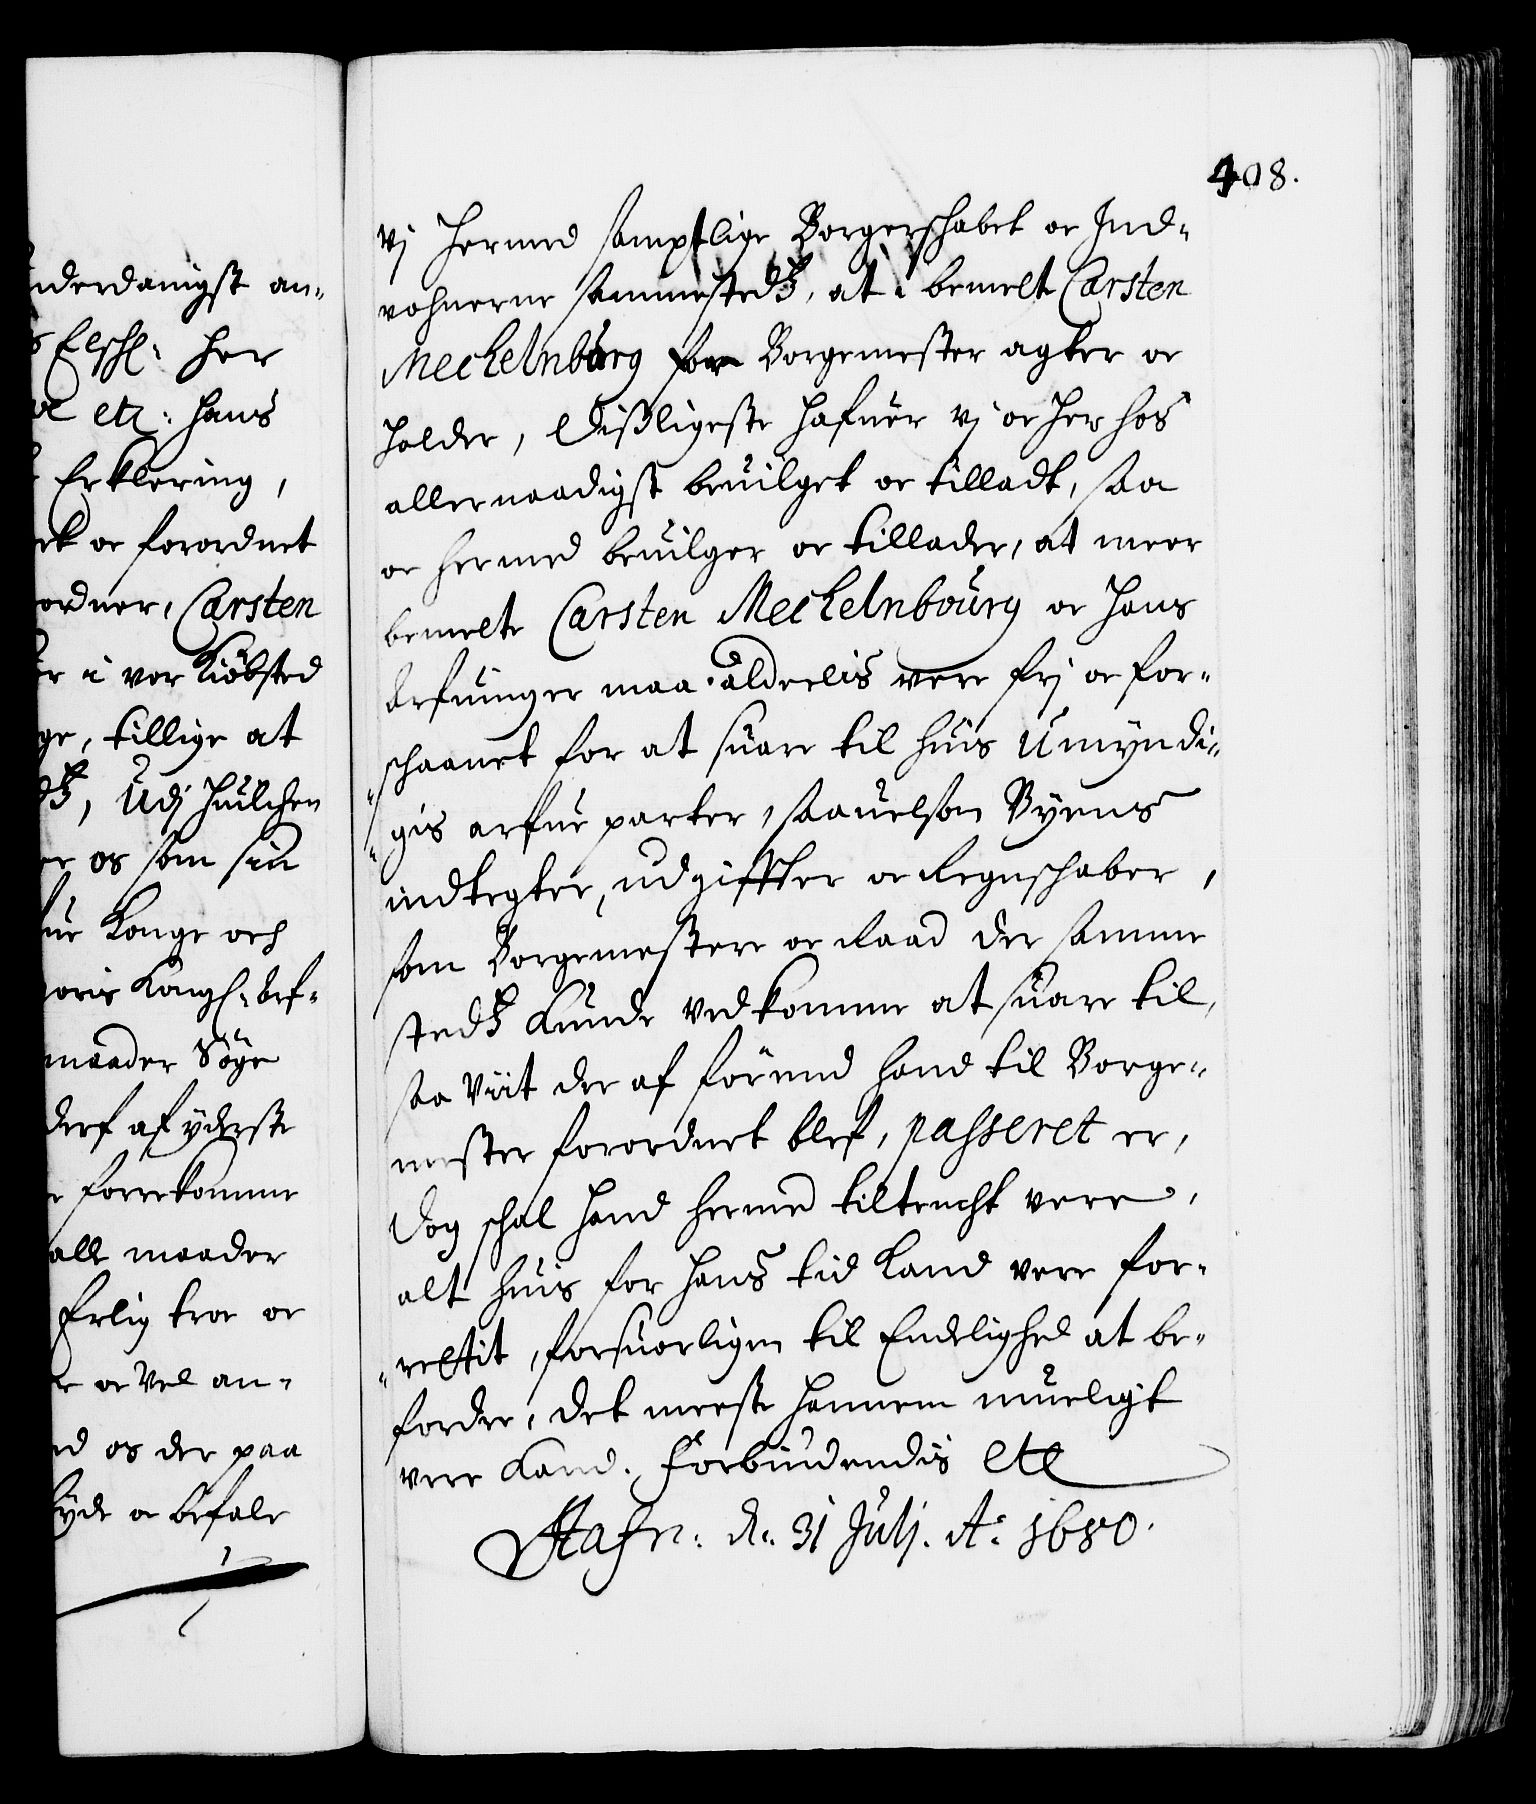 nderdanigst an-
Elschl: her
etc: hans
Erklering,
et oc forordnet
ordner, Carsten
i vor Kiöbsted
ge, tillige at
Udj huilchen
os som sin
Konge och
voris Kongl: arf-
maader Söge
derf af yderste
forrekomme
alle maader
Erlig troe oc
oc Vel an-
os der paa
byde oc befale
408.
vj hermed samptlige Borgerschabet oc Ind-
vohnerne sammestedtz, at i bemelte Carsten
Mechelnburg for Borgemester agter oc
holder, dißligeste hafuer vj oc her hos
allernaadigst beuilget oc tilladt, saa
oc hermed beuilger oc tillader, at meer
bemelte Carsten Mechelnbourg oc hans
Arfuinger maa aldeelis vere frj oc for-
schaanet for at suare til huis Umyndi-
gis arfue parter, saauelsom Byens
indtegter, udgiffter oc Regnschaber,
som Borgemestere oc Raad der samme
stedtz kunde vedkomme at suare til,
saa Viit der af förend hand til Borge-
mester forordnet blef, passeret er,
Dog schal hand hermed tiltencht vere,
alt huis for hans tid kand vere for-
rettit, forsuorligen til Endelighed at be-
fordre, det meeste hannem mueligt
vere kand. Forbiudendis etc
Hafn: d. 31 Julj. Ao 1680.